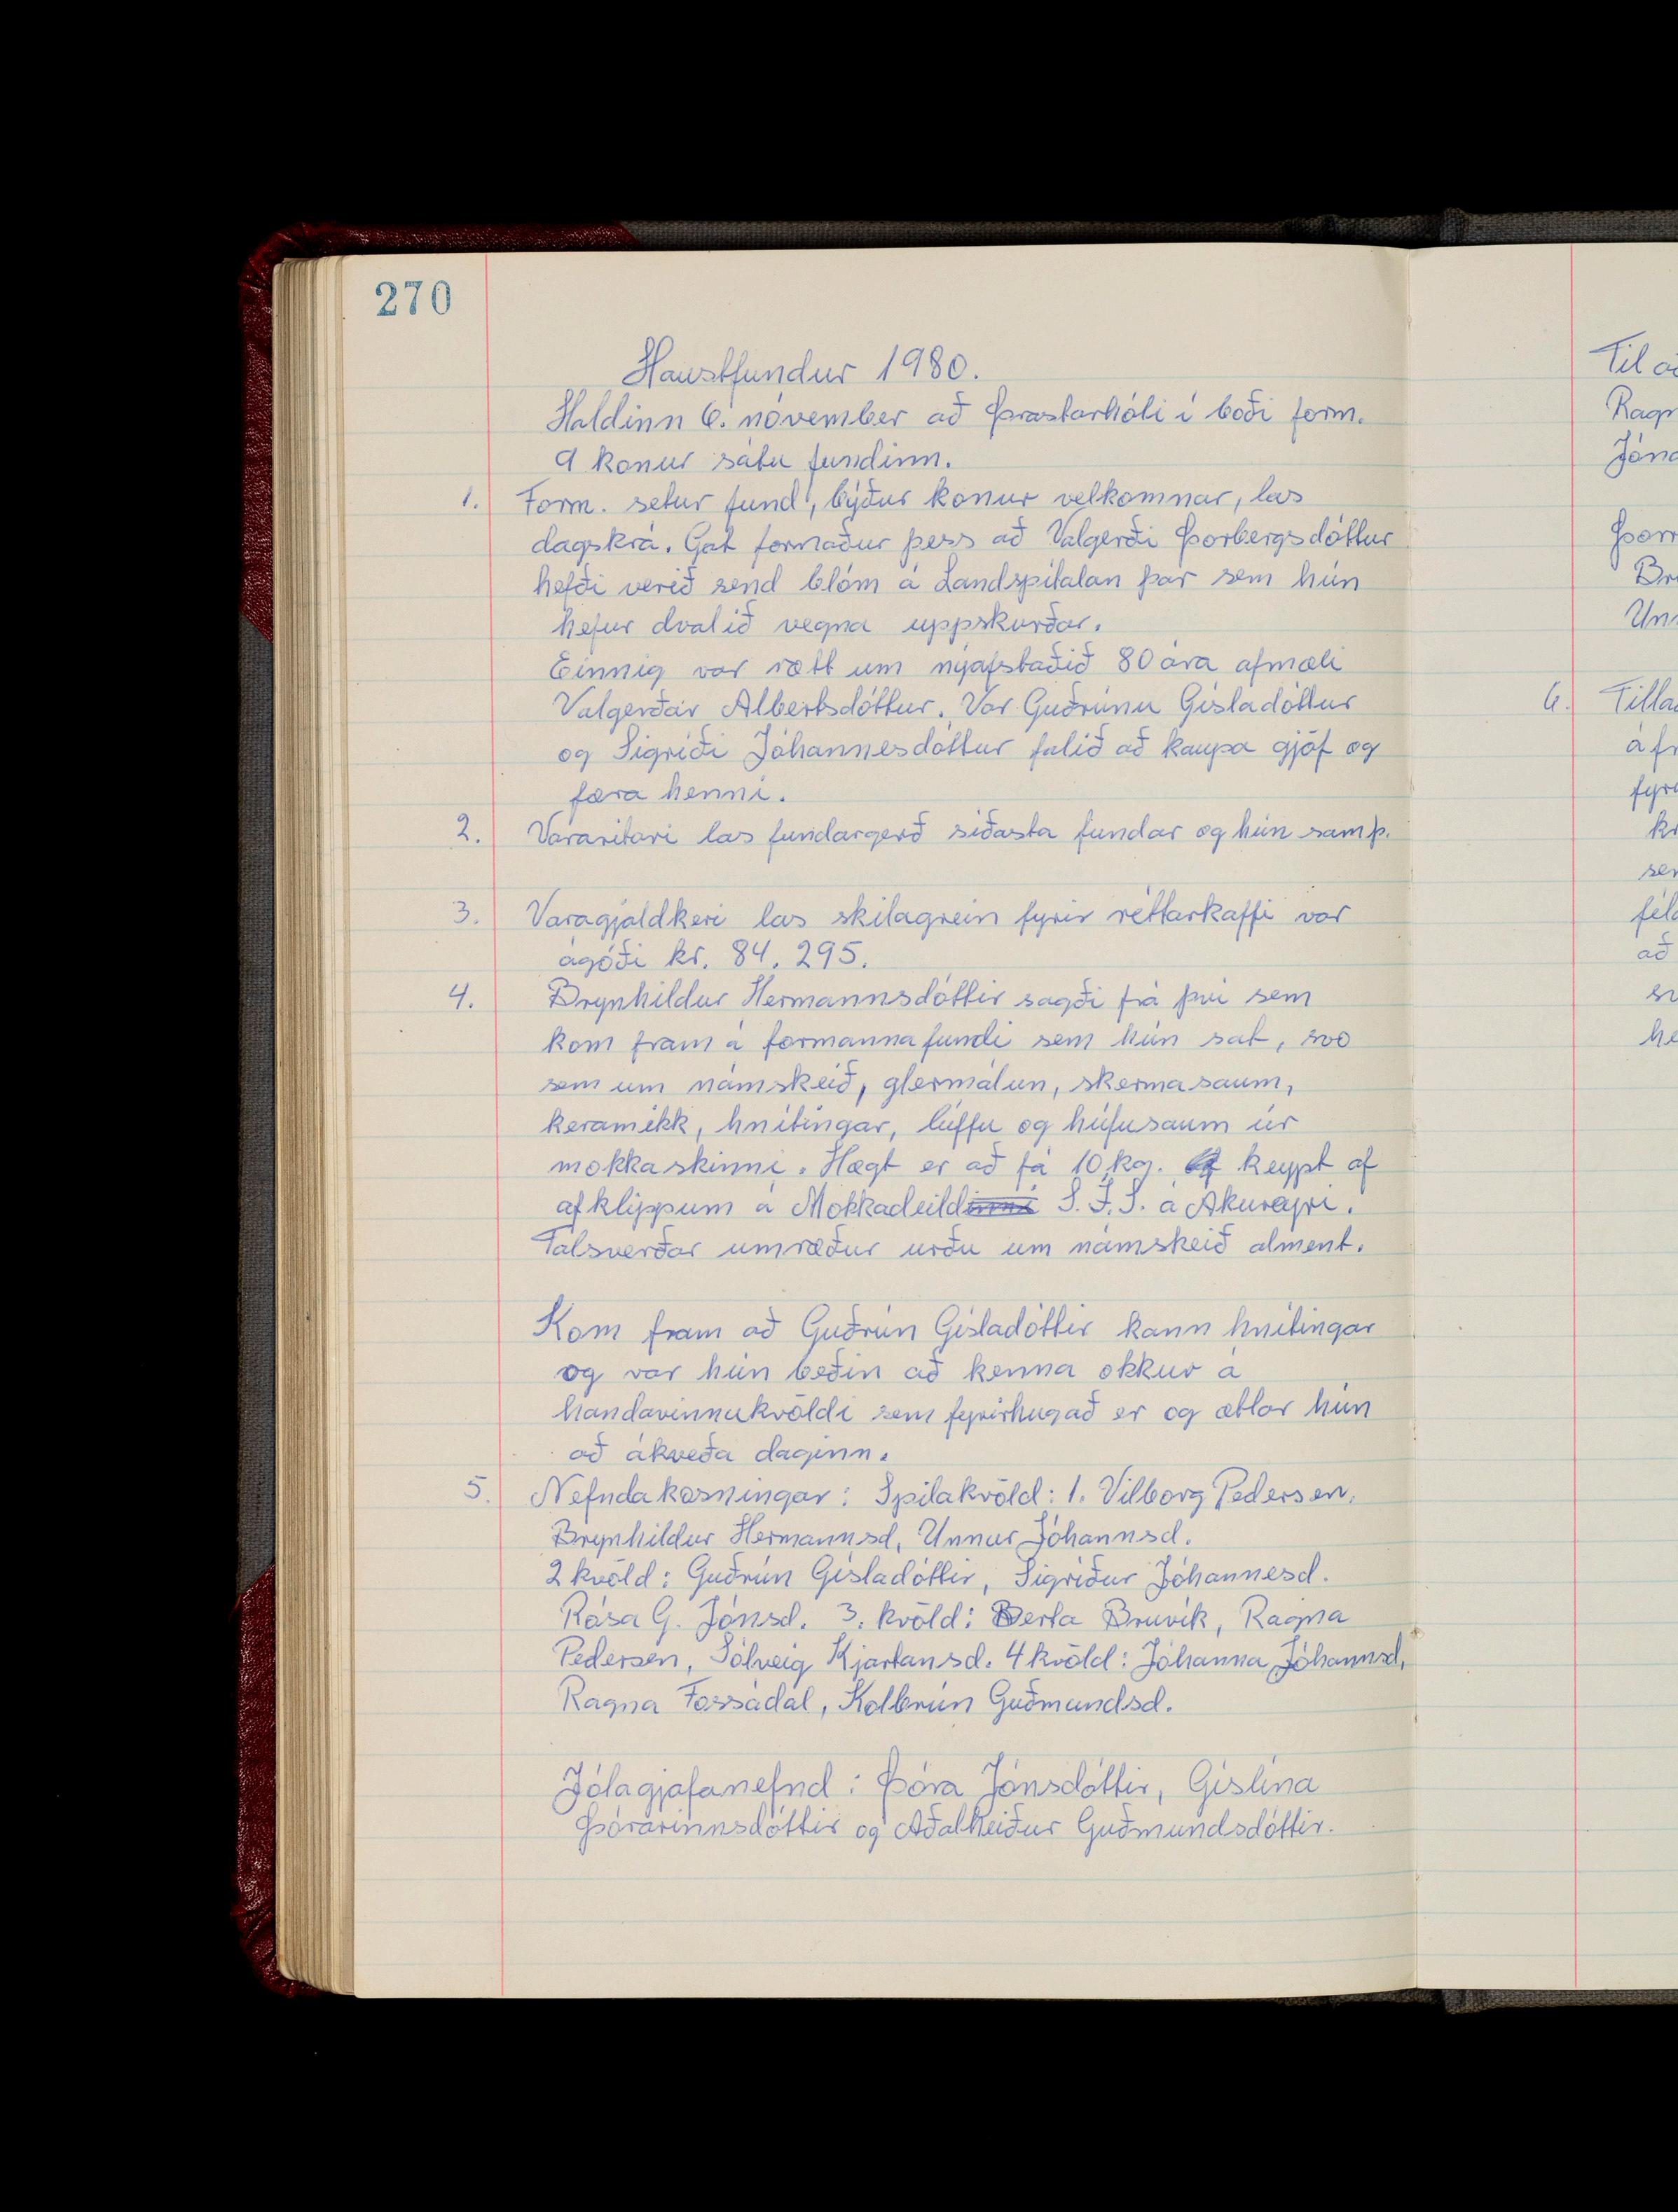 270
Haustfundur 1980.
Haldinn 6. nóvember að Þrastarhóli í boði form.
9 konur sátu fundinn.
1. Form. setur fund, býður konur velkomnar, las
dagskrá. Gat formaður þess að Valgerði Þorbergsdóttur
hefði verið send blóm á Landspítalan þar sem hún
hefur dvalið vegna uppskurðar.
Einnig var rætt um nýafstaðið 80 ára afmæli
Valgerðar Albertsdóttur. Var Guðrúnu Gísladóttur
og Sigríði Jóhannesdóttur falið að kaupa gjöf og
færa henni.
2. Vararitari las fundargerð síðasta fundar og hún samþ.
3. Varagjaldkeri las skilagrein fyrir réttarkaffi var
ágóði kr. 84.295.
4. Brynhildur Hermannsdóttir sagði frá því sem
kom fram á formannafundi sem hún sat, svo
sem um námskeið, glermálun, skermasaum,
keramikk, hnítingar, lúffu og húfusaum úr
mokkaskinni. Hægt er að fá 10 kg. keypt af
afklippum á Mokkadeild S.Í.S. á Akureyri.
Talsverðar umræður urðu um námskeið alment.
Kom fram að Guðrún Gísladóttir kann hnítingar
og var hún beðin að kenna okkur á
handavinnukvöldi sem fyrirhugað er og ætlar hún
að ákveða daginn.
5. Nefndakosningar: Spilakvöld: 1. Vilborg Pedersen,
Brynhildur Hermannsd, Unnur Jóhannsd.
2 kvöld: Guðrún Gísladóttir, Sigríður Jóhannesd.
Rósa G. Jónsd. 3. kvöld: Berta Bruvik, Ragna
Pedersen, Sólveig Kjartansd. 4 kvöld: Jóhanna Jóhannsd,
Ragna Fossádal, Kolbrún Guðmundsd.
Jólagjafanefnd: Þóra Jónsdóttir, Gíslína
Þórarinnsdóttir og Aðalheiður Guðmundsdóttir.
Til
6.